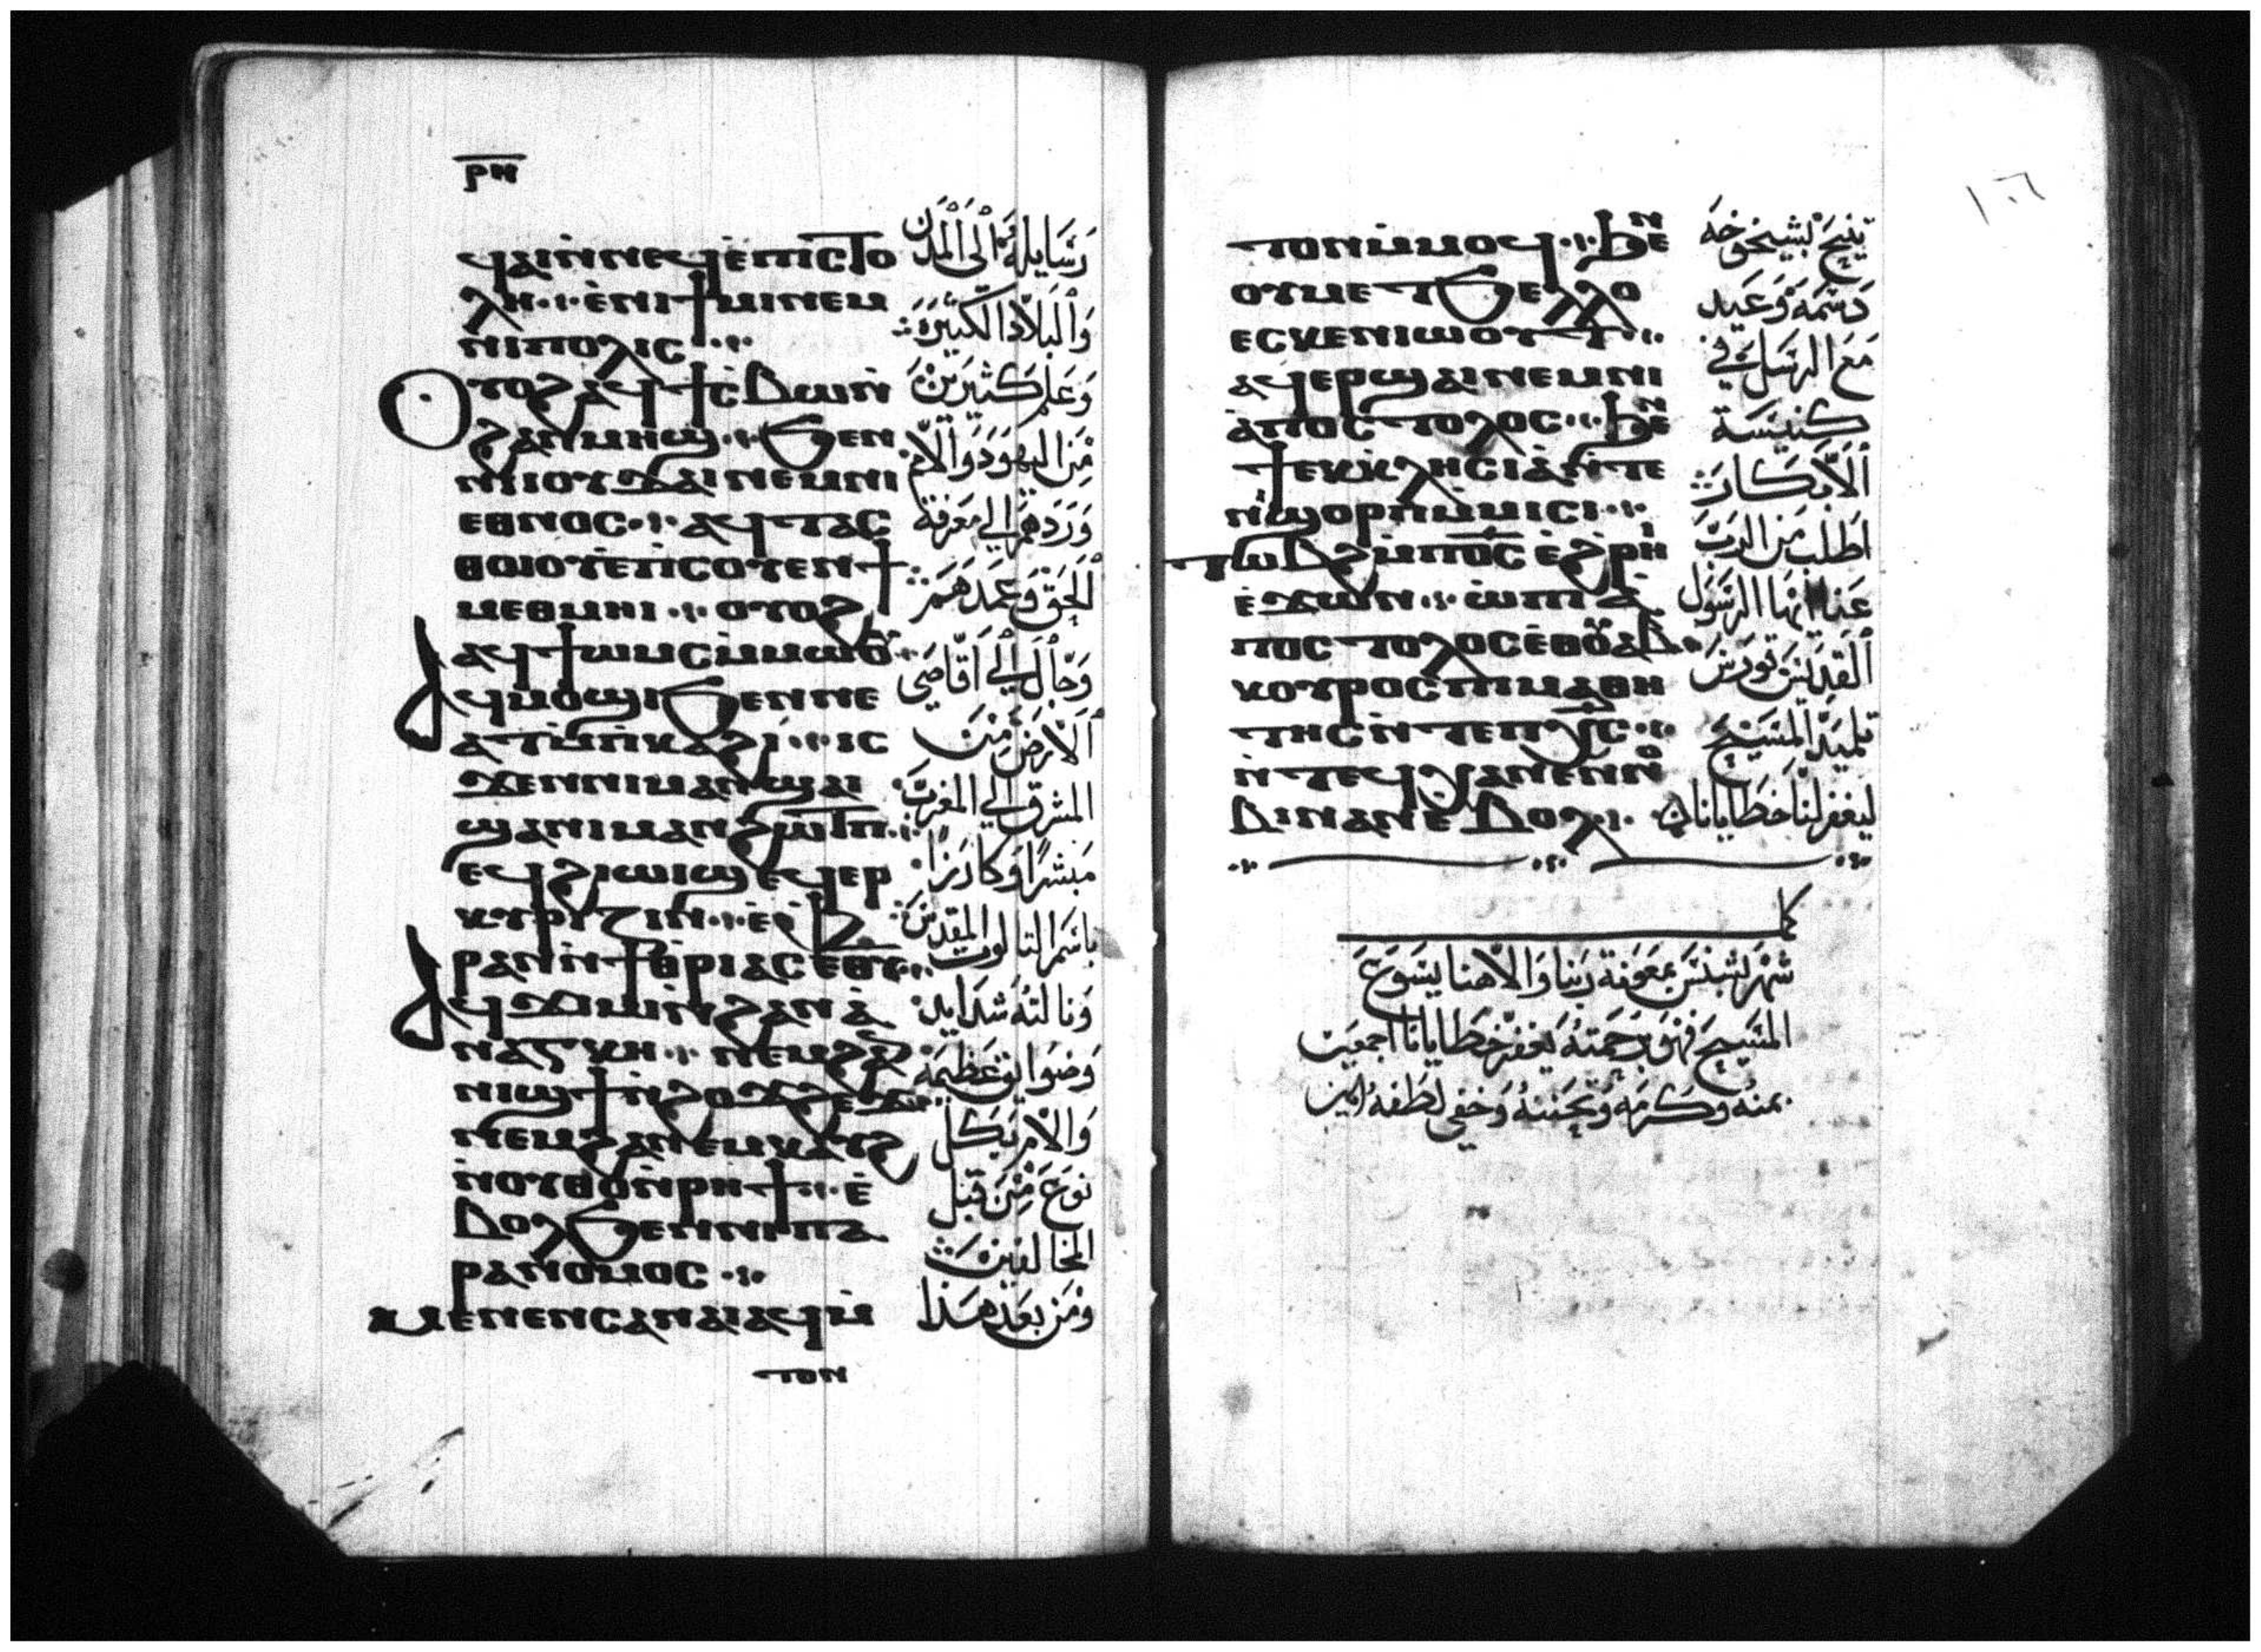 ⲣⲏ
ϥⲁⲓⲛ̀ⲛⲉϥⲉ̀ⲡⲓⲥⲧⲟ
ⲗⲏ ·ⲓ· ⲉ̀ⲛⲓϯⲙⲓⲛⲉⲙ
ⲛⲓⲡⲟⲗⲓⲥ
ⲟⲩⲟϩⲁϥϯⲥ̀ⲃⲱⲛ̀
ϩⲁⲛⲙⲏϣ ·ⲓ· ϧⲉⲛ
ⲛⲓⲟⲩϫⲁⲓⲛⲉⲙⲛⲓ
ⲉⲑⲛⲟⲥ ·ⲓ· ⲁϥⲧⲁⲥ
ⲑⲱⲟⲩⲉ̀ⲡ̀ⲥⲟⲩⲉⲛϯ
ⲙⲉⲑⲙⲏⲓ ·ⲓ· ⲟⲩⲟϩ
ⲁϥϯⲱⲙⲥⲙ̀ⲙⲱⲟⲩ
ⲁϥⲙⲟϣⲓϧⲉⲛⲛⲉ
ⲁⲩⲙ̀ⲡ̀ⲕⲁϩⲓ ·ⲓ· ⲓⲥ
ϫⲉⲛⲛⲓⲙⲁⲛϣⲁⲓ
ϣⲁⲛⲓⲙⲁⲛϩⲱⲧⲡ
ⲉϥϩⲓⲱⲓϣⲉϥⲉⲣ
ⲕⲩⲣⲓⲍⲓⲛ ·ⲓ·
ⲣⲁⲛⲛ̀ϯⲑⲣⲓⲁⲥ ⲉⲑⲩ
ⲁϥϫⲓⲙⲓⲛ̀ϩⲁⲛⲁ̀
ⲛⲁⲅⲕⲏ ·ⲓ· ⲛⲉⲙϩⲁⲛ
ⲛⲓϣϯⲛ̀ϩⲟϫϩⲉϫ
ⲛⲉⲙϩⲁⲛⲉⲙⲕⲁⲩϩ
ⲛ̀ⲟⲩⲑⲟⲛ̀ⲣⲏϯ ·ⲓ· ⲉ̀
ⲃⲟⲗϧⲉⲛⲛⲓⲡⲁ
ⲣⲁⲛⲟⲙⲟⲥ ·ⲓ·
ⲙⲉⲛⲉⲛⲥⲁⲛⲁⲓⲁϥⲙ̀
ⲧⲟⲛ
رسايله الى المدن
والبلاد الكثيره
وعلم كثيرين
من اليهود والامم
وردهم الي معرفة
الحق وعمدهم
وجال الي اقاصي
الارض من
المشرق الي المغرب
مبشرا وكارزا
باسم التالوت المقدس
ونالته شدايد
وضوايق عظيمه
والام بكل
نوع من قبل
المخالفين
ومن بعد هذا
١٠٦
ⲧⲟⲛⲙ̀ⲙⲟϥ ·ⲓ· ϧⲉⲛ
ⲟⲩⲙⲉⲧϧⲉⲗⲗⲟ
ⲉⲥⲕⲉⲛⲓⲱⲟⲩⲧ
ⲁϥⲉⲣϣⲁⲓⲛⲉⲙⲛⲓ
ⲁ̀ⲡⲟⲥⲧⲟⲗⲟⲥ ϧⲉⲛ
ϯⲉⲕⲕⲗⲏⲥⲓⲁ̀ⲛ̀ⲧⲉ
ⲛⲓϣⲟⲣⲡⲙ̀ⲙⲓⲥⲓ
ⲧⲱⲃϩⲙ̀ⲡⲟ̅ⲥ̅ ⲉ̀ϩⲣⲏⲓ
ⲉ̀ϫⲱⲛ ·ⲓ· ⲱ̀ⲡⲓⲁ̀
ⲡⲟⲥⲧⲟⲗⲟⲥⲉⲑⲟⲩⲁⲃ
ⲕⲟⲩⲣⲟⲥⲡⲓⲙⲁⲑⲏ
ⲧⲏⲥⲛ̀ⲧⲉⲡⲭ̅ⲥ̅
ⲛ̀ⲧⲉϥⲭⲁⲛⲉⲛⲛⲟ
ⲃⲓⲛⲁⲛⲉ̀ⲃⲟⲗ
تنيح بشيخوخه
دسمه وعيد
مع الرسل في
كنيسة
الابكار
اطلب من الرب
عنا ايها الرسول
القديس قورس
تلميد المسيح
ليغفر لنا خطايانا
شهر بشنس بمعونة ربنا والاهنا يسوع
المسيح فهو برحمته يغفر خطايانا اجمعين
بمنه وكرمه وتحننه وخفي لطفه امين